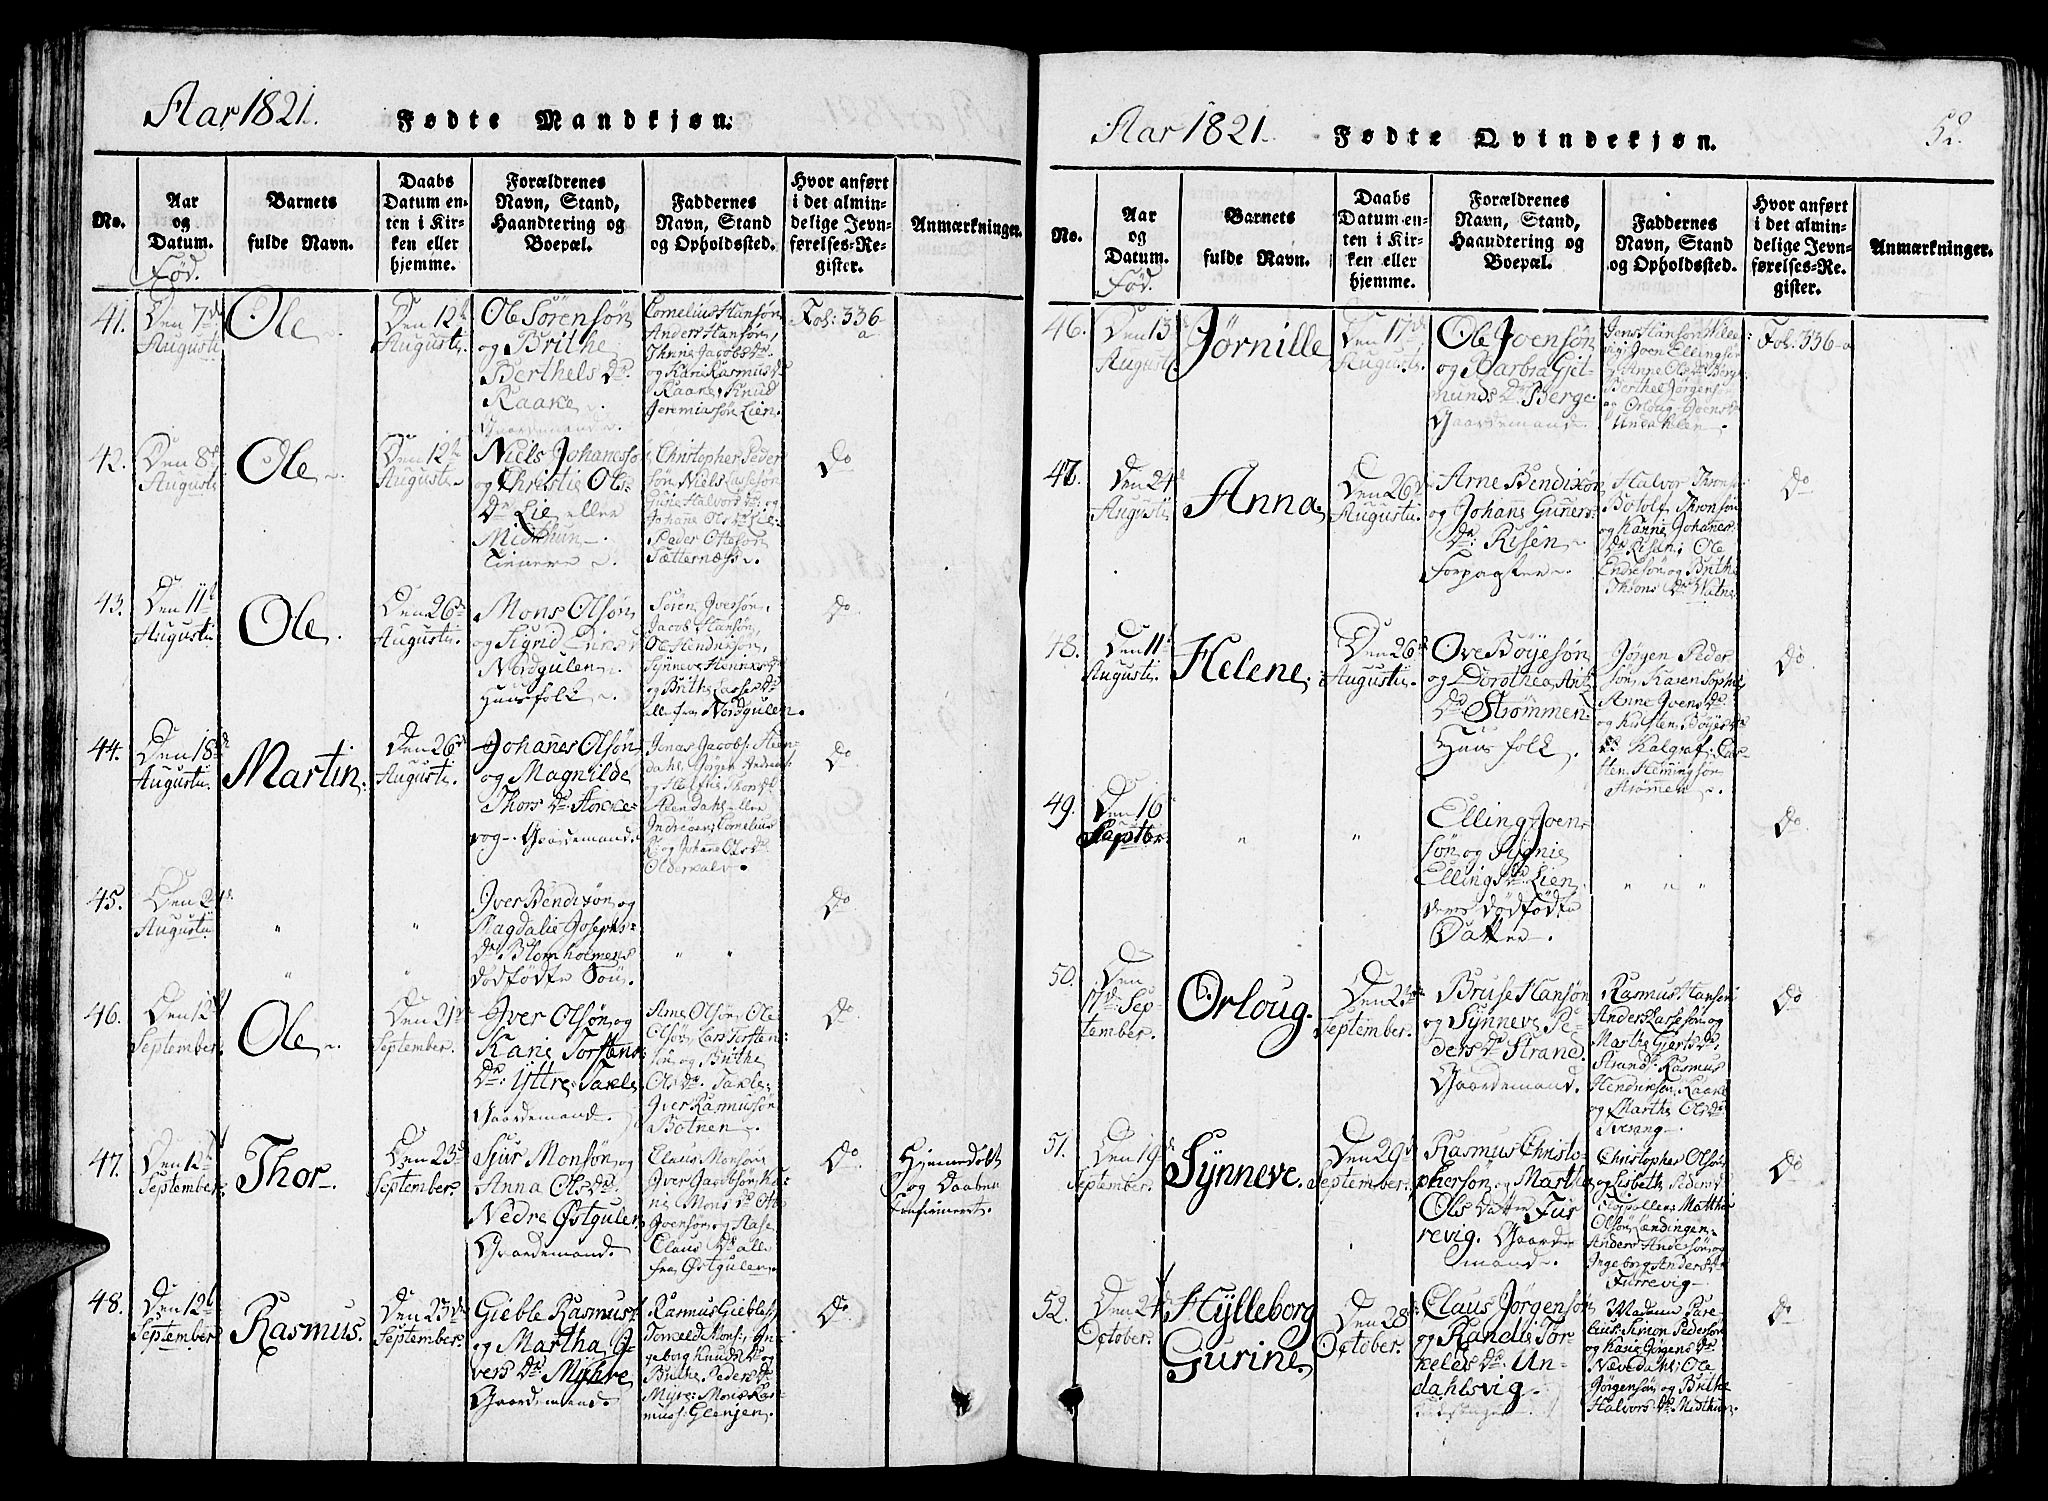 Aar 1821.
Fødte Mandkjøn.
No.
Aar
og
Datum.
Fød.
Barnets
fulde Navn.
Daabs
Datum en-
ten i Kir-
ken eller
hjemme.
Forældrenes
Navn, Stand,
Haandtering og
Boepæl.
Faddernes
Navn, Stand
og Opholdssted.
Hvor anført
i det almin-
delige Jevn-
førelses-Re-
gister.
Anmærkninger.
41.
Den 7de
Augusti
Ole
Den 12te
Augusti.
Ole Sörensön
og Brithe
Berthels Dr.
Kaake
Gaardemand.
Cornelius Hansön
Anders Hansön,
Anne Jacobs Dr
og Kari Rasmus Dr
Kaake, Knud
Jeremiasön Lien.
Fol: 336
a
42.
Den 8de
Augusti
Ole
Den 12te
Augusti
Niels Johanesö
og Christie Ols
Dr Lie eller
Midthun
Christopher Peder
sön Niels Lassesön
Halvors Dr og
Johane Ols Dr Lie
Peder Ottesön
Sætternæss
Do
43.
Den 11te
Augusti
Ole
Den 26de
Augusti.
Mons Olsön
og Sigrid
Nordgulen
Huusfolk
Sören Iversön,
Jacob Hansön,
Ole Hendriksön,
Synneve Henriks Dr
og Brithe Lasses Dr
alle fra Nordgulen.
Do
44.
Den 18de
Augusti.
Martin
Den 26de
Augusti.
Johanes Olsön
og Magnilde
Thors Dr. Storre
vog. Gaardemand
Jonas Jacobs:
dahl, Jørgen
og
eller
Cornelius
og Johane Ols Dr
Olderkalv.
Do
45.
Den 24de
Augusti
"
"
Iver Bendixön og
Magdalie Josephs
Dr Blomholmens
dödfödte Sön.
" "
Do
46.
Den 12te
September.
Ole
Den 21de
September.
Iver Olsön og
Karie Torstens
Dr: Yttre Takle
Gaardemand.
Arne Olsön, Ole
Olsön, Lars Torsten
sön og Brithe
Ols Dr. Takle
Iver Rasmussön
Botnen
Do
47.
Den 12te
September.
Thor
Den 23de
September.
Sjur Monsön og
Anna Ols Dr.
Nedre Østgulen
Gaardemand.
Claus Monsön
Iver Jacobsön, Ka-
rie Mons Dr Ole
Joensön og Aase
Claus Dr alle
fra Østgulen
Do
Hjemedöbt
og Daaben
Confirmeret.
48.
Den 12te
September
Rasmus.
Den 23de
September.
Gieble Rasmus:
og Martha I-
vers Dr Myhre
Gaardemand
Rasmus Giebles:
Mons:, In-
geborg Knuds Dr og
Brithe Peders Dr
Myre: Mons Ras-
muss: Glenjen.
Do
Aar 1821.
Fødte Qvindekjøn.
52.
No.
Aar
og
Datum.
Fød.
Barnets
fulde Navn.
Daabs
Datum en-
ten i Kir-
ken eller
hjemme.
Forældrenes
Navn, Stand,
Haandtering og
Boepæl.
Faddernes
Navn, Stand
og Opholdssted.
Hvor anført
i det almin-
delige Jevn-
førelses-Re-
gister.
Anmærkninger.
46.
Den 13de
Augusti.
Jørnille
Den 17de
Augusti.
Ole Joensön
og Barbra Gjel-
munds Dr Berge
Gaardemand.
Jens Hansön
Joen Ellingsön
Anne Ols Dr Berge
Berthe Jørgens
og Orloug Joens Dr
Undahlen
Fol. 336 a
47.
Den 24de
Augusti
Anna
Den 26de
Augusti.
Arne Bendixön
og Johane Guners
Dr: Risen
Forpagter
Halvor Thronsön
Botolf Thronsön
og Karine Johanes
Dr Risen; Ole
Endresön og Brithe
Throns Dr Watne
Do
48.
Den 11te
Augusti.
Helene
Den 26de
Augusti.
Ove Böyesön
og Dorothea
Dr Strömmen
Huusfolk.
Jørgen Peder
sön, Karen Sophie
Anne Joens Dr
og Kirsten Böyes Dr
Kalgraf. Car-
sten Flemingsön
Strömmen
Do
49.
Den 16
September.
"
"
Elling Joen-
sön og
Ellings Dr Lien
deres dödfödte
Datter.
" " "
Do
50.
Den
17de Sep
tember.
Orloug.
Den 23de
September.
Bruse Hansön
og Synneve Pe-
ders Dr Strand.
Gaardemand.
Rasmus Hansön
Anders Lassesön og
Marthe Gierts Dr
Strand. Rasmus
Hendriksön Kaake
og Marthe Ols Dr
Do
51.
Den 19de
September.
Synneve.
Den 29de
September.
Rasmus Christo-
phersön og Marthe
Ols Datter Fur
revig. Gaarde
mand.
Christopher Olsön
og Lisbeth Peders Dr
Matthis
Olsön Lændingen
Anders Andersön og
Ingeborg Anders Dr
Furrevig
Do
52.
Den 24de
October.
Hylleborg
Gurine
Den 28de
October.
Claus Jörgensön
og Randi Tor-
kelds Dr: Un-
dahlsvig.
Madme
Simon Pedersön
og Karie Jörgens Dr
Nævedahl: Ole
Jörgensön og Brithe
Halvors Dr Midthun.
Do